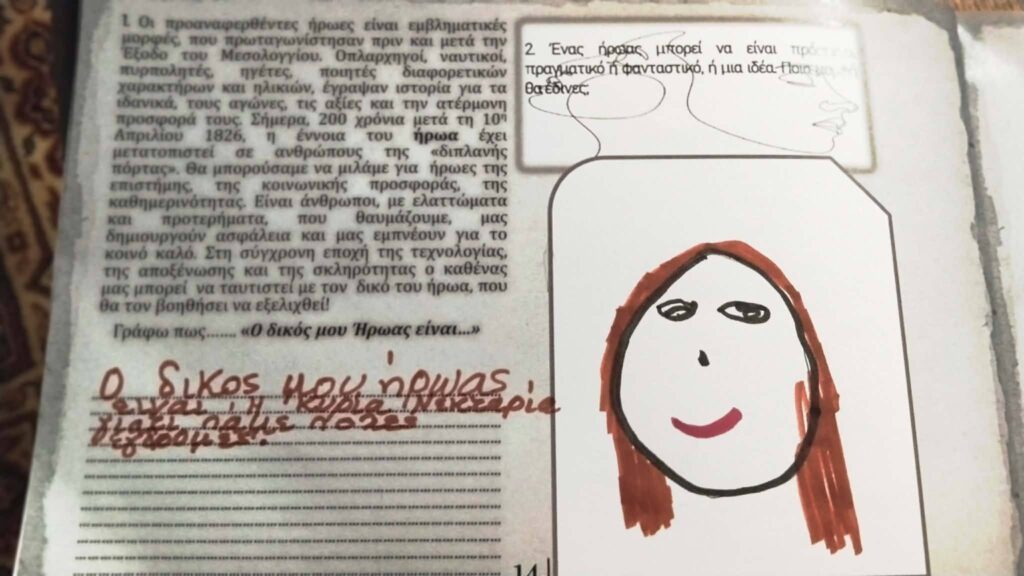 1. Οι προαναφερθέντες ήρωες είναι εμβληματικές
μορφές, που πρωταγωνίστησαν πριν και μετά την
Έξοδο του Μεσολογγίου. Οπλαρχηγοί, ναυτικοί,
πυρπολητές, ηγέτες, ποιητές διαφορετικών
χαρακτήρων και ηλικιών, έγραψαν ιστορία για τα
ιδανικά, τους αγώνες, τις αξίες και την ατέρμονη
προσφορά τους. Σήμερα, 200 χρόνια μετά τη 10η
Απριλίου 1826, η έννοια του ήρωα έχει
μετατοπιστεί σε ανθρώπους της «διπλανής
πόρτας». Θα μπορούσαμε να μιλάμε για ήρωες της
επιστήμης, της κοινωνικής προσφοράς, της
καθημερινότητας. Είναι άνθρωποι, με ελαττώματα
και προτερήματα, που θαυμάζουμε, μας
δημιουργούν ασφάλεια και μας εμπνέουν για το
κοινό καλό. Στη σύγχρονη εποχή της τεχνολογίας,
της αποξένωσης και της σκληρότητας ο καθένας
μας μπορεί να ταυτιστεί με τον δικό του ήρωα, που
θα τον βοηθήσει να εξελιχθεί!
Γράφω πως....... «Ο δικός μου Ήρωας είναι...»
Ο δικος μου ήρωας
ειναι η κυρία Νεκταρία
γιατι παμε πολες
εγδρομες.
2. Ένας ήρωας μπορεί να είναι
πραγματικό ή φανταστικό, ή μια ιδέα. Ποια μορφή
θα έδινες;
14